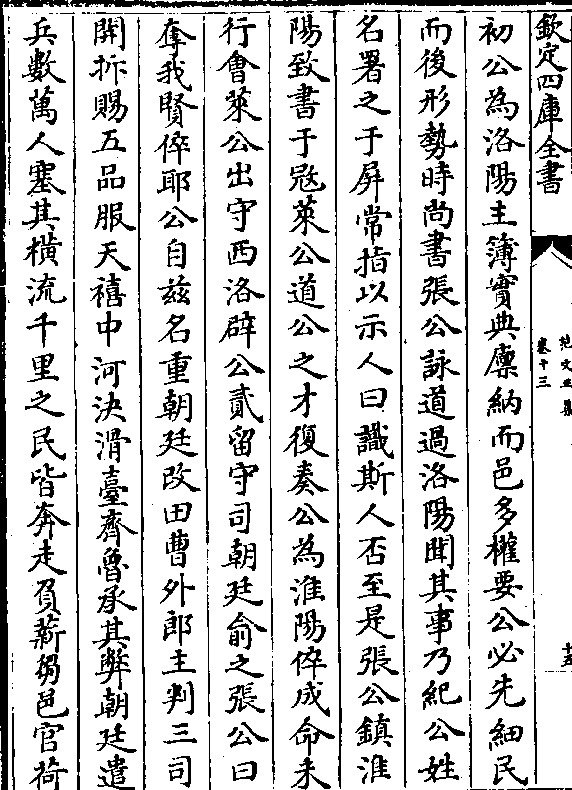 欽定四庫全書
范文正集
卷十三
十五
初公為洛陽主簿實典廪納而邑多權要公必先細民
而後形勢時尚書張公詠道過洛陽聞其事乃紀公姓
名署之于屏常指以示人曰識斯人否至是張公鎮淮
陽致書于冦萊公道公之才復奏公為淮陽倅成命未
行會萊公出守西洛辟公貳留守司朝廷俞之張公曰
奪我賢倅耶公自兹名重朝廷改田曹外郎主判三司
開拆賜五品服天禧中河決滑臺齊魯承其弊朝廷遣
兵數萬人塞其橫流千里之民皆奔走負薪芻邑官荷